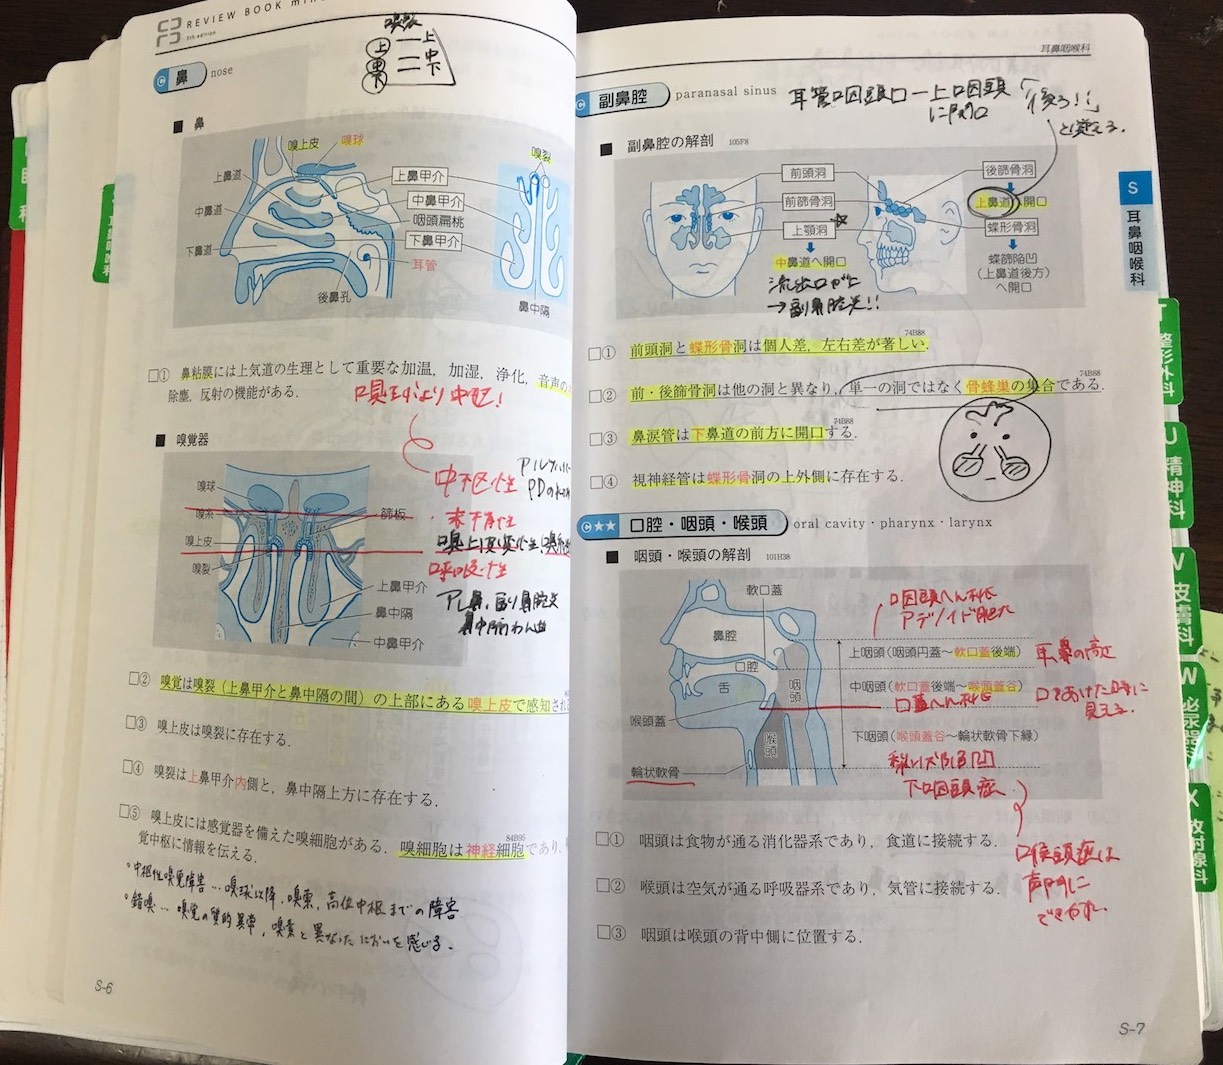 REVIEW BOOK
5th edition
C 鼻 nose
■ 鼻
嗅裂
上 中 下
上 中 下
嗅上皮
嗅球
上鼻道
中鼻道
下鼻道
後鼻孔
上鼻甲介
中鼻甲介
咽頭扁桃
下鼻甲介
耳管
嗅裂
鼻中隔
□① 鼻粘膜には上気道の生理として重要な加温，加湿，浄化，音声の
除塵，反射の機能がある．
■ 嗅覚器
嗅球
嗅糸
嗅上皮
嗅裂
篩板
上鼻甲介
鼻中隔
中鼻甲介
嗅球より中枢！
中枢性
末梢性
嗅上皮性
呼吸性
アレ鼻、副鼻腔炎
鼻中隔わん曲
□② 嗅覚は嗅裂（上鼻甲介と鼻中隔の間）の上部にある嗅上皮で感知され
□③ 嗅上皮は嗅裂に存在する．
□④ 嗅裂は上鼻甲介内側と，鼻中隔上方に存在する．
84B95
□⑤ 嗅上皮には感覚器を備えた嗅細胞がある．嗅細胞は神経細胞であり，
覚中枢に情報を伝える．
・中枢性嗅覚障害…嗅球以降，嗅索，高位中枢までの障害
・錯嗅…嗅覚の質的異常，嗅素と異なったにおいを感じる．
S-6
耳鼻咽喉科
C 副鼻腔 paranasal sinus
耳管咽頭口ー上咽頭
に開口
「後ろ!!」
と覚える．
■ 副鼻腔の解剖 105F8
前頭洞
前篩骨洞
上顎洞
中鼻道へ開口
流出口が上
→副鼻腔炎!!
後篩骨洞
上鼻道へ開口
蝶形骨洞
蝶篩陥凹
（上鼻道後方）
へ開口
74B88
□① 前頭洞と蝶形骨洞は個人差，左右差が著しい．
74B88
□② 前・後篩骨洞は他の洞と異なり，単一の洞ではなく骨蜂巣の集合である．
74B88
□③ 鼻涙管は下鼻道の前方に開口する．
□④ 視神経管は蝶形骨洞の上外側に存在する．
C★★ 口腔・咽頭・喉頭 oral cavity・pharynx・larynx
■ 咽頭・喉頭の解剖 101H38
軟口蓋
鼻腔
口腔
舌
咽頭
喉頭蓋
喉頭
輪状軟骨
咽頭へん桃
アデノイド肥大
上咽頭（咽頭円蓋～軟口蓋後端）
耳、鼻の高さ
中咽頭（軟口蓋後端～喉頭蓋谷）
口蓋へん桃
口をあけた時に
見える．
下咽頭（喉頭蓋谷～輪状軟骨下縁）
梨状陥凹
下咽頭癌
□① 咽頭は食物が通る消化器系であり，食道に接続する．
□② 喉頭は空気が通る呼吸器系であり，気管に接続する．
□③ 咽頭は喉頭の背中側に位置する．
喉頭癌は
声門に
できやすい
S-7
S
耳鼻咽喉科
T
整形外科
U
精神科
V
皮膚科
W
泌尿器
X
放射線科